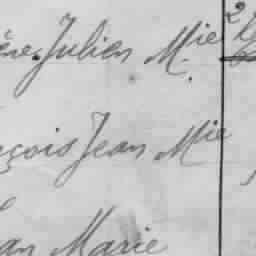 Julien M.ie
nçois Jean Mie
an Marie